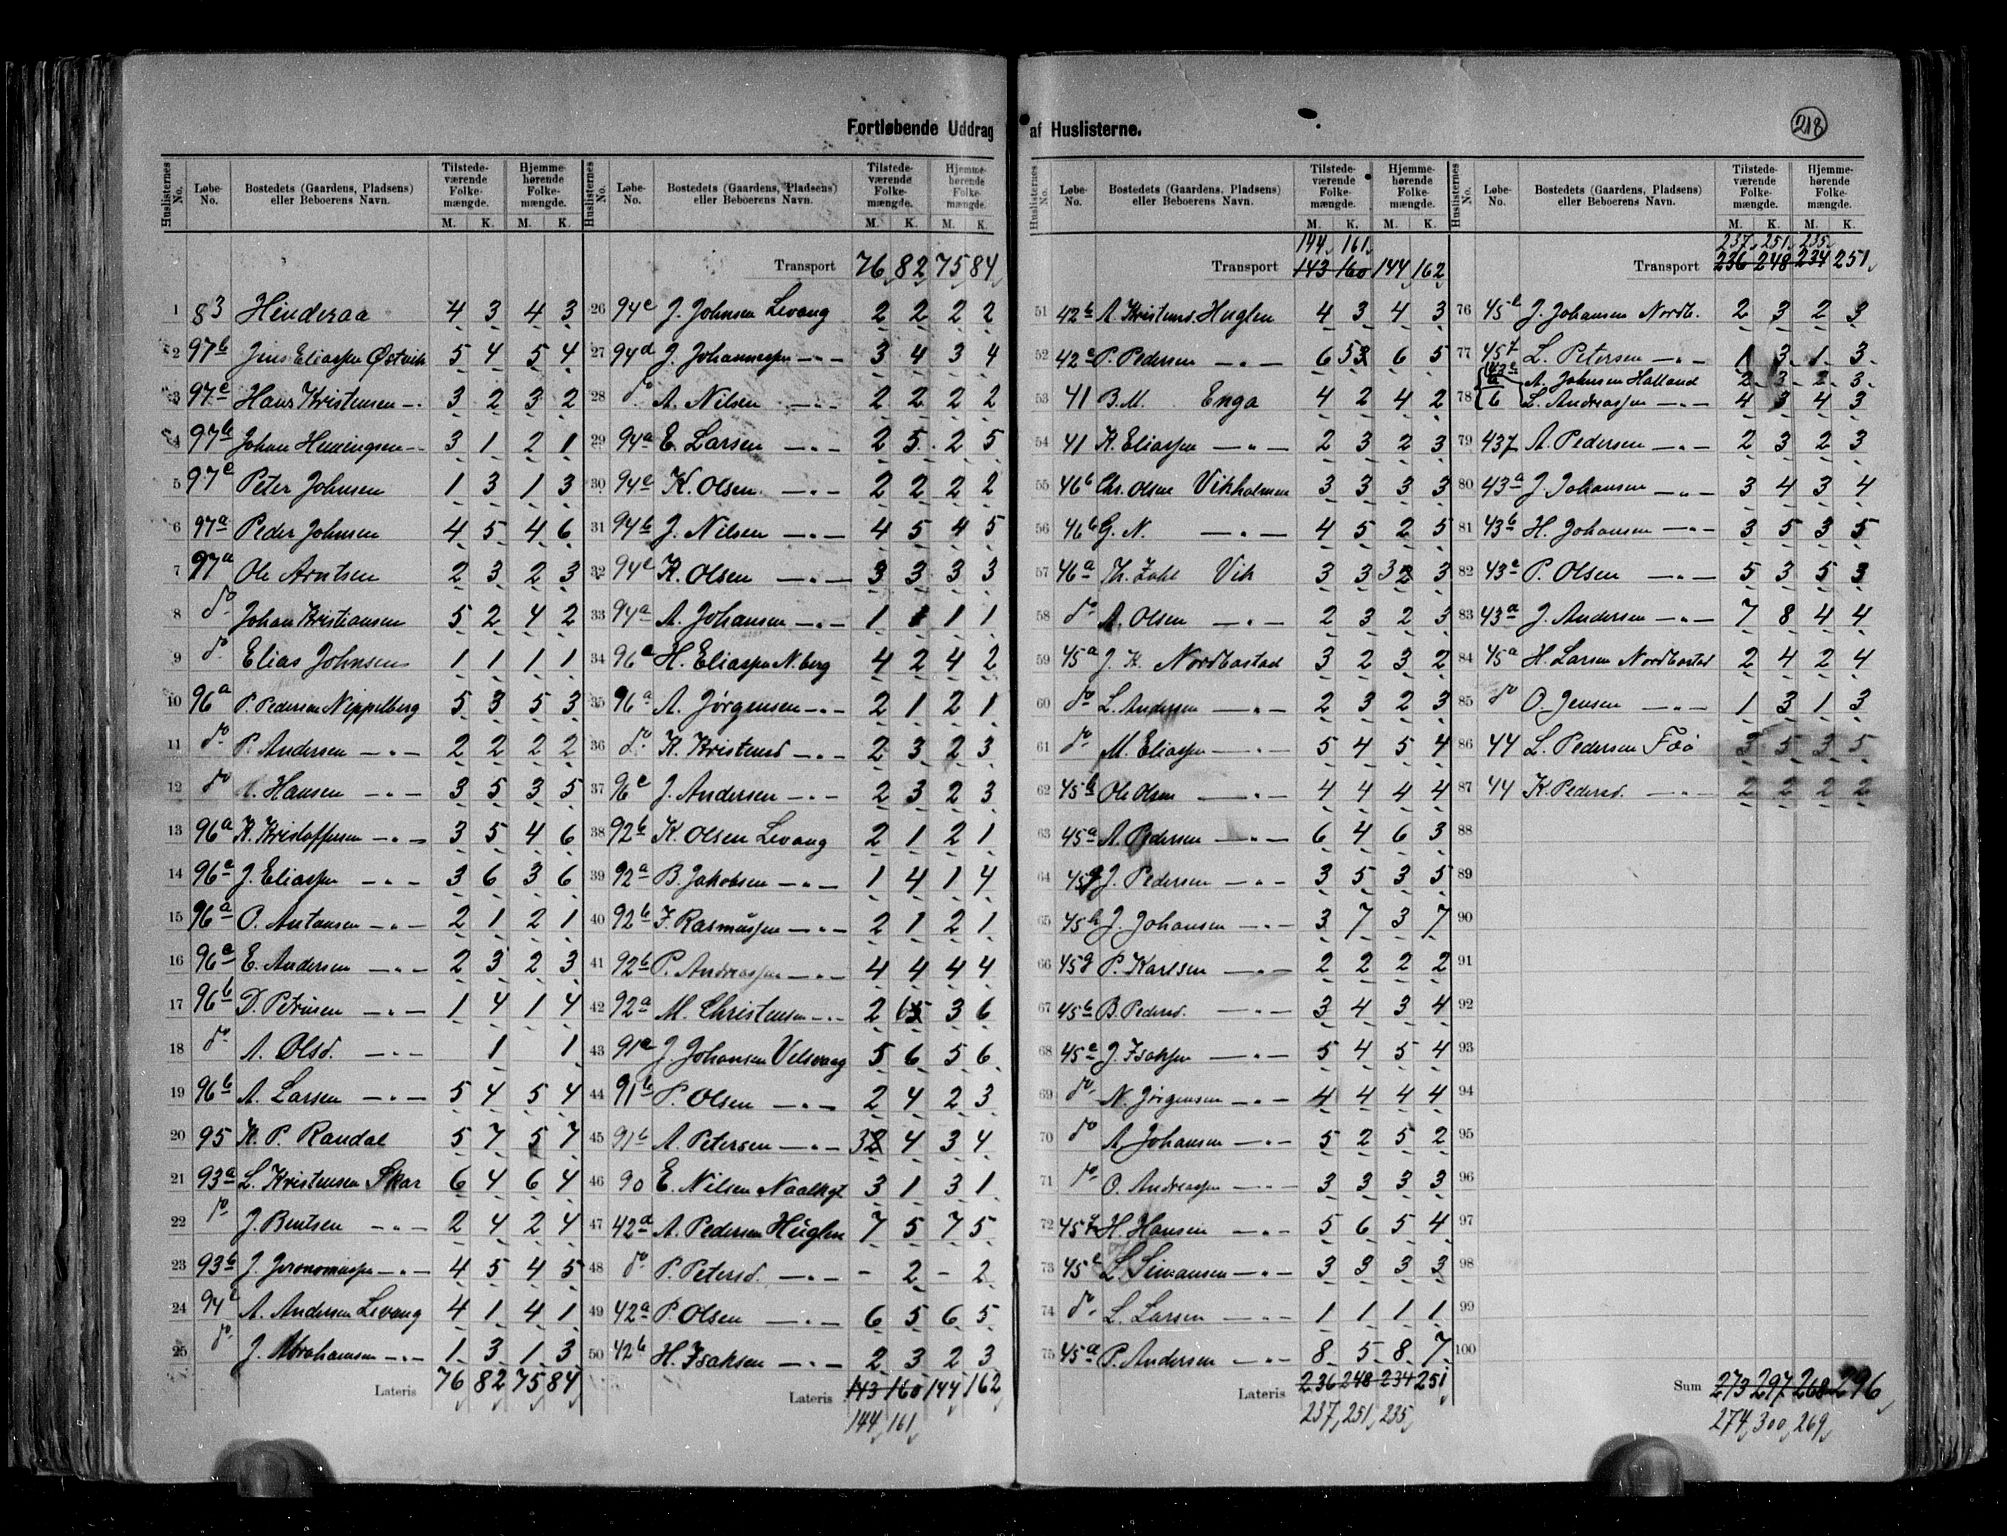 Fortløbende Uddrag af Huslisterne.
218
Huslisternes No. Løbe-No. Bostedets (Gaardens, Pladsens) eller Beboerens Navn. Tilstedeværende Folkemængde. M. K. Hjemmehørende Folkemængde. M. K.
1 83 Hinderaa 4 3 4 3
2 97b Jens Eliassen Østvik 5 4 5 4
3 97c Hans Kristensen —„— 3 2 3 2
4 97b Johan Hemingsen —„— 3 1 2 1
5 97c Peter Johnsen 1 3 1 3
6 97a Peder Johnsen 4 5 4 6
7 97a Ole Arntsen 2 3 2 3
8 do Johan Kristiansen 5 2 4 2
9 do Elias Johnsen 1 1 1 1
10 96a P. Pedersen Nippelberg 5 3 5 3
11 do P. Andersen —„— 2 2 2 2
12 do A. Hansen —„— 3 5 3 5
13 96a K. Kristoffersen —„— 3 5 4 6
14 96c J. Eliassen —„— 3 6 3 6
15 96a O. Antonsen —„— 2 1 2 1
16 96c E. Andersen —„— 2 3 2 3
17 96b D. Petrusen —„— 1 4 1 4
18 do A. Olsd. —„— 1 1
19 96b A. Larsen —„— 5 4 5 4
20 95 K. P. Randal 5 7 5 7
21 93a L. Kristensen Skar 6 4 6 4
22 do J. Bentsen —„— 2 4 2 4
23 93b J. Jeronomussen —„— 4 5 4 5
24 94c A. Andersen Levang 4 1 4 1
25 do J. Abrahamsen —„— 1 3 1 3
Lateris 76 82 75 84
Huslisternes No. Løbe-No. Bostedets (Gaardens, Pladsens) eller Beboerens Navn. Tilstedeværende Folkemængde. M. K. Hjemmehørende Folkemængde. M. K.
Transport 76 82 75 84
26 94c J. Johnsen Levang 2 2 2 2
27 94d J. Johannessen —„— 3 4 3 4
28 do A. Nilsen —„— 2 2 2 2
29 94a E. Larsen —„— 2 5 2 5
30 94c K. Olsen —„— 2 2 2 2
31 94b J. Nilsen —„— 4 5 4 5
32 94c K. Olsen —„— 3 3 3 3
33 94a A. Johansen —„— 1 1 1 1
34 96c H. Eliassen N.berg 4 2 4 2
35 96a A. Jørgensen —„— 2 1 2 1
36 do K. Kristensd —„— 2 3 2 3
37 96c J. Andersen —„— 2 3 2 3
38 92b K. Olsen Levang 2 1 2 1
39 92a B. Jakobsen —„— 1 4 1 4
40 92b F. Rasmussen —„— 2 1 2 1
41 92b P. Andreassen —„— 4 4 4 4
42 92a M. Christensen —„— 2 6 3 6
43 91a J. Johansen Velsvaag 5 6 5 6
44 91b P. Olsen —„— 2 4 2 3
45 91b A. Petersen —„— 3 4 3 4
46 90 E. Nilsen 3 1 3 1
47 42a A. Pedersen Huglen 7 5 7 5
48 do P. Petersd. —„— - 2 - 2
49 42a P. Olsen —„— 6 5 6 5
50 42b H. Isaksen —„— 2 3 2 3
Lateris 143 160 144 162
144 161
Huslisternes No. Løbe-No. Bostedets (Gaardens, Pladsens) eller Beboerens Navn. Tilstedeværende Folkemængde. M. K. Hjemmehørende Folkemængde. M. K.
144 161
Transport 143 160 144 162
51 42b A. Kristens. Huglen 4 3 4 3
52 42c P. Pedersen —„— 6 5 6 5
53 41 B. M. Enga 4 2 4 2
54 41 K. Eliassen —„— 2 3 2 3
55 46b Chr. Olsen Vikholmen 3 3 3 3
56 46b G. N. —„— 4 5 2 5
57 46a Th. Zahl Vik 3 3 3 3
58 do A. Olsen —„— 2 3 2 3
59 45a J. K. Nordbostad 3 2 3 2
60 do L. Andersen —„— 2 3 2 3
61 do M. Eliassen —„— 5 4 5 4
62 45b Ole Olsen —„— 4 4 4 4
63 45a A. Pedersen —„— 6 4 6 3
64 45g J. Pedersen —„— 3 5 3 5
65 45h J. Johansen —„— 3 7 3 7
66 45g P. Karlsen —„— 2 2 2 2
67 45b B. Pedersd. —„— 3 4 3 4
68 45e J. Isaksen —„— 5 4 5 4
69 do N. Jørgensen —„— 4 4 4 4
70 do A. Johansen —„— 5 2 5 2
71 do O. Andreassen —„— 3 3 3 3
72 45f H. Hansen —„— 5 6 5 4
73 45c L. Simonsen —„— 3 3 3 3
74 do L. Larsen —„— 1 1 1 1
75 45d P. Andersen —„— 8 5 8 7
Lateris 236 248 234 251
237 251 235
Huslisternes No. Løbe-No. Bostedets (Gaardens, Pladsens) eller Beboerens Navn. Tilstedeværende Folkemængde. M. K. Hjemmehørende Folkemængde. M. K.
237 251 235
Transport 236 248 234 251
76 45e J. Johansen Nordb. 2 3 2 3
77 45f L. Petersen —„— 1 3 1 3
43c a A. Johnsen Halland 2 3 2 3
78 b L. Andreassen —„— 4 3 4 3
79 43f A. Pedersen —„— 2 3 2 3
80 43a J. Johansen —„— 3 4 3 4
81 43b H. Johansen —„— 3 5 3 5
82 43e P. Olsen —„— 5 3 5 3
83 43a J. Andersen —„— 7 8 4 4
84 45a H. Larsen Nordbostad 2 4 2 4
85 do O. Jensen —„— 1 3 1 3
86 44 L. Pedersen Föö 3 5 3 5
87 44 K. Pedersd. —„— 2 2 2 2
88
89
90
91
92
93
94
95
96
97
98
99
100
Sum 273 297 268 296
274 300 269